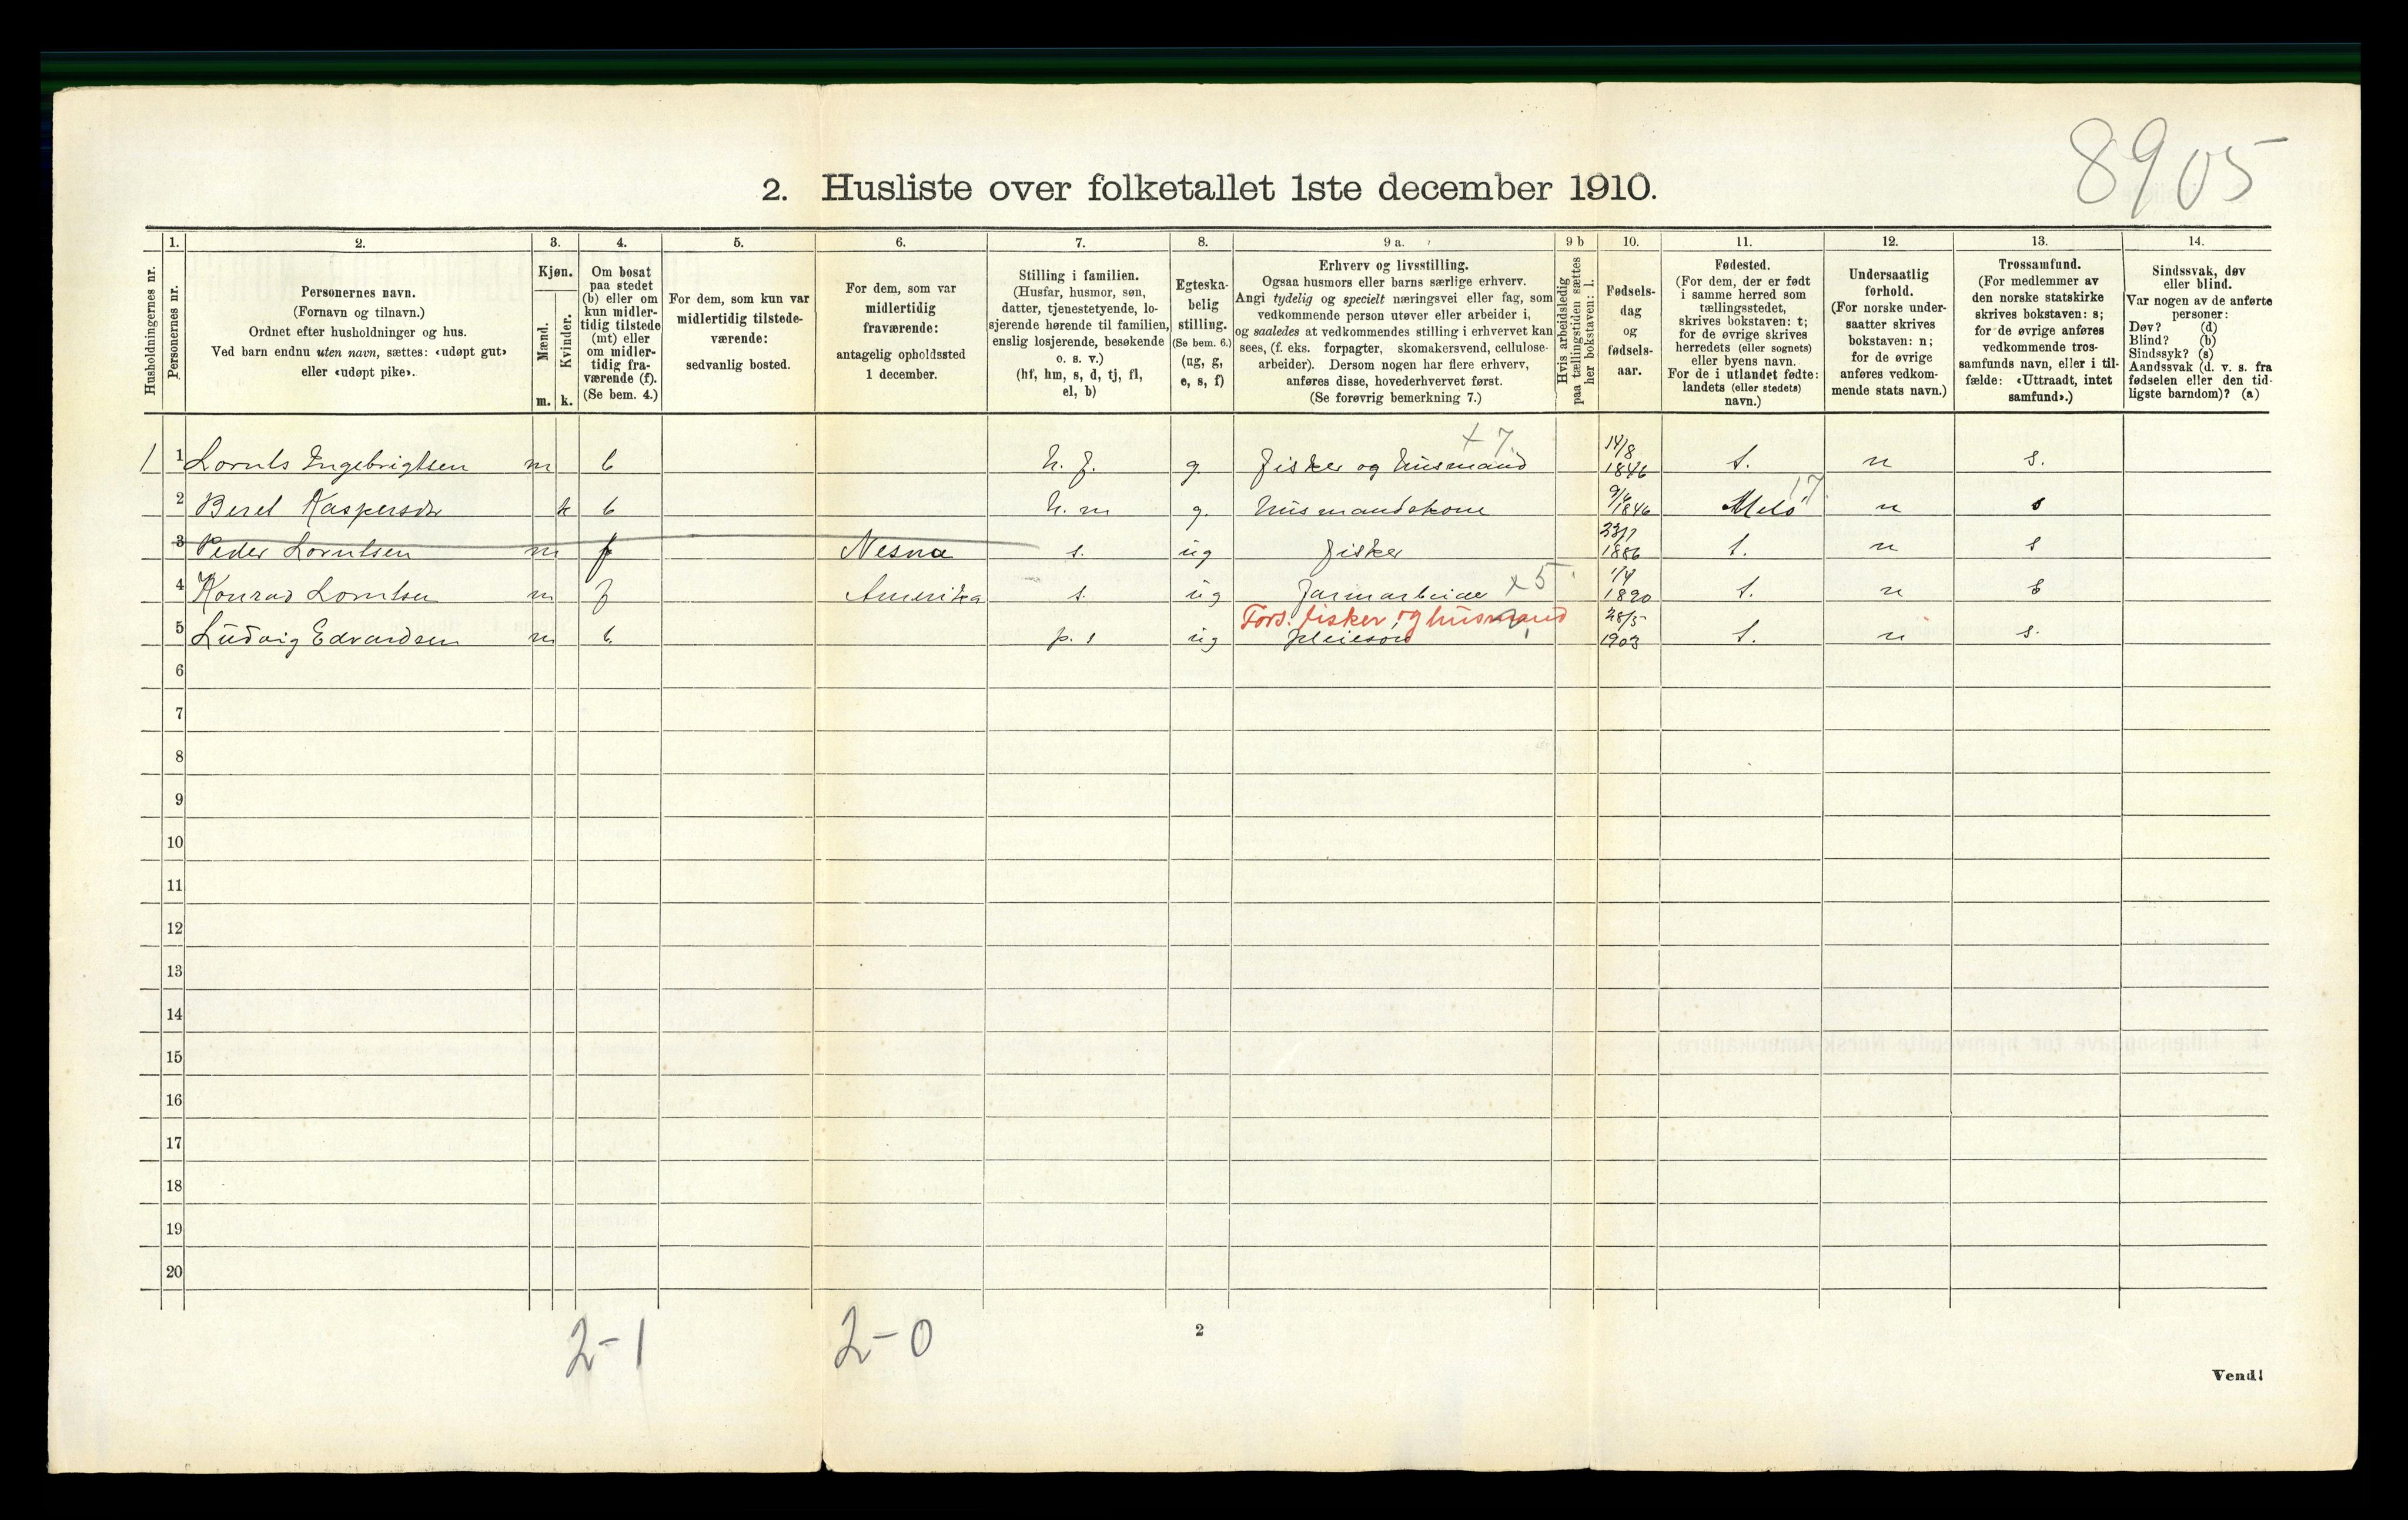 8905
2. Husliste over folketallet 1ste december 1910.
1. 2. 3. 4. 5. 6. 7. 8. 9 a. 9 b 10. 11. 12. 13. 14.
Husholdningernes nr.
Personernes nr.
Personernes navn.
(Fornavn og tilnavn.)
Ordnet efter husholdninger og hus.
Ved barn endnu uten navn, sættes: «udøpt gut»
eller «udøpt pike».
Kjøn.
Mænd.
Kvinder.
m. k.
Om bosat
paa stedet
(b) eller om
kun midler-
tidig tilstede
(mt) eller
om midler-
tidig fra-
værende (f).
(Se bem. 4.)
For dem, som kun var
midlertidig tilstede-
værende:
sedvanlig bosted.
For dem, som var
midlertidig
fraværende:
antagelig opholdssted
1 december.
Stilling i familien.
(Husfar, husmor, søn,
datter, tjenestetyende, lo-
sjerende hørende til familien,
enslig losjerende, besøkende
o. s. v.)
(hf, hm, s, d, tj, fl,
el, b)
Egteska-
belig
stilling.
(Se bem. 6.)
(ug, g,
e, s, f)
Erhverv og livsstilling.
Ogsaa husmors eller barns særlige erhverv.
Angi tydelig og specielt næringsvei eller fag, som
vedkommende person utøver eller arbeider i,
og saaledes at vedkommendes stilling i erhvervet kan
sees, (f. eks. forpagter, skomakersvend, cellulose-
arbeider). Dersom nogen har flere erhverv,
anføres disse, hovederhvervet først.
(Se forøvrig bemerkning 7.)
Hvis arbeidsledig
paa tællingstiden sættes
her bokstaven: l.
Fødsels-
dag
og
fødsels-
aar.
Fødested.
(For dem, der er født
i samme herred som
tællingsstedet,
skrives bokstaven: t;
for de øvrige skrives
herredets (eller sognets)
eller byens navn.
For de i utlandet fødte:
landets (eller stedets)
navn.)
Undersaatlig
forhold.
(For norske under-
saatter skrives
bokstaven: n;
for de øvrige
anføres vedkom-
mende stats navn.)
Trossamfund.
(For medlemmer av
den norske statskirke
skrives bokstaven: s;
for de øvrige anføres
vedkommende tros-
samfunds navn, eller i til-
fælde: «Uttraadt, intet
samfund».)
Sindssvak, døv
eller blind.
Var nogen av de anførte
personer:
Døv? (d)
Blind? (b)
Sindssyk? (s)
Aandssvak (d. v. s. fra
fødselen eller den tid-
ligste barndom)? (a)
x 7.
1 1 Lornts Ingebrigtsen m b h. f. g. fisker og husmand 14/8 1846 t. n s.
17
2 Beret Kaspersdr k b h. m g. husmandskone 9/6 1846 Melö n s
3 Peder Lorntsen m f Nesna s. ug fisker 23/7 1886 t. n s
4 Konrad Lorntsen m f Amerika s. ug farmarbeider x 5 1/4 1890 t. n s
Fors. fisker og husmand
5 Ludvig Edvardsen m b p. s ug pleiesøn 28/5 1903 t. n s.
6
7
8
9
10
11
12
13
14
15
16
17
18
19
20
2-1 2-0
2
Vend!